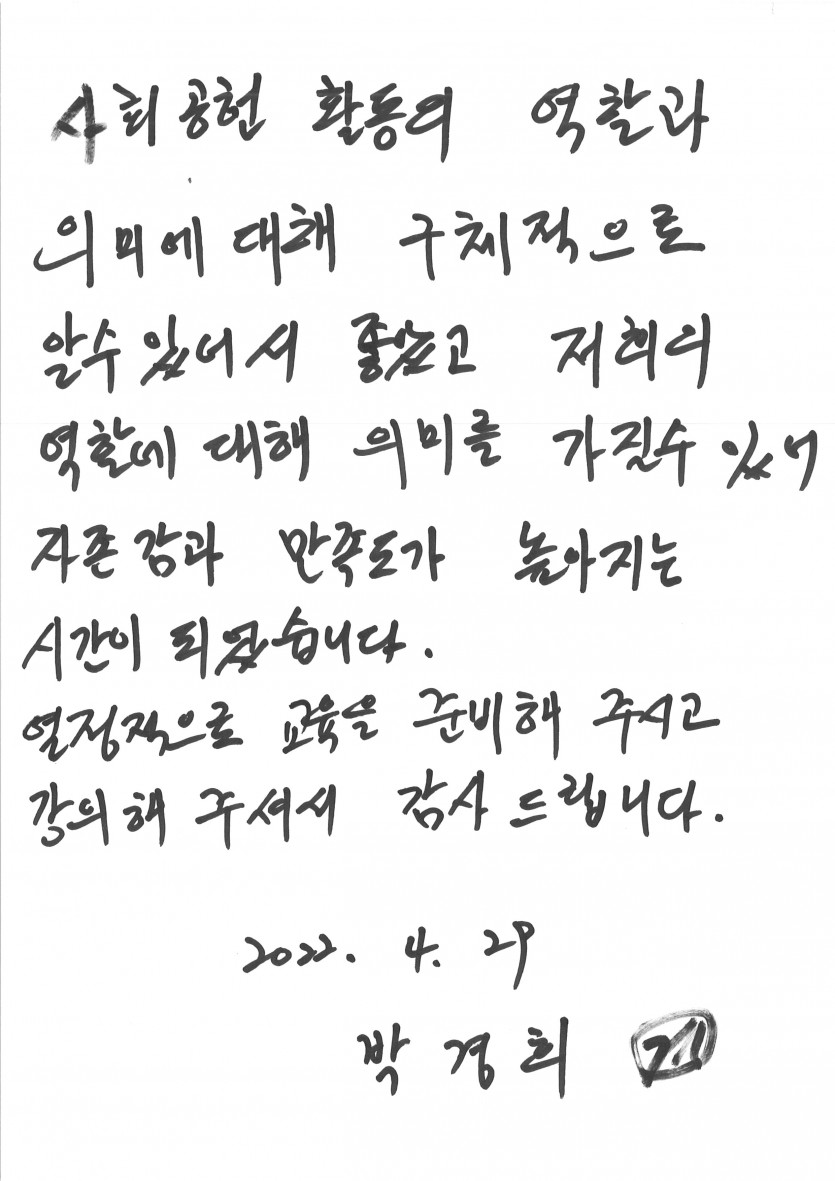 사회공헌 활동의 역할과
의미에 대해 구체적으로
알수 있어서 좋았고 저희의
역할에 대해 의미를 가질수 있어
자존감과 만족도가 높아지는
시간이 되었습니다.
열정적으로 교육을 준비해 주시고
강의해 주셔서 감사 드립니다.
2022. 4. 29
박경희